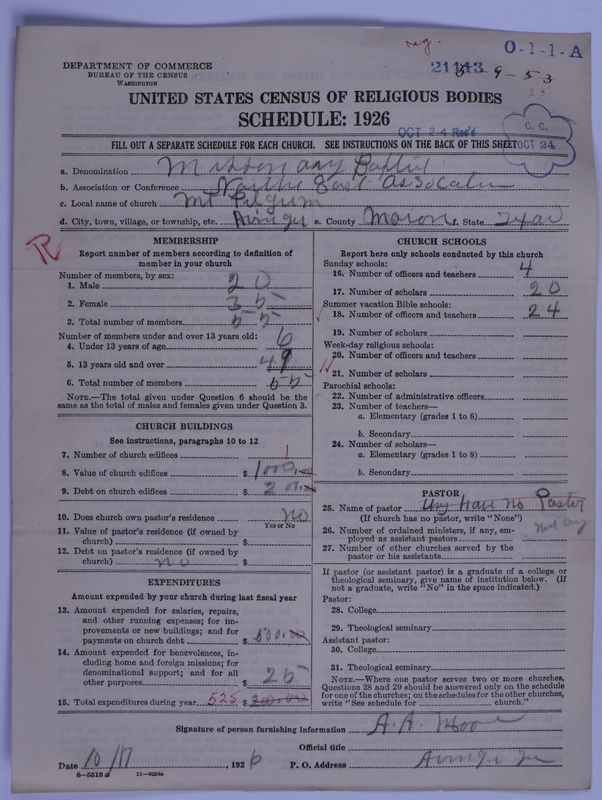 reg. O-1-1-A
DEPARTMENT OF COMMERCE
BUREAU OF THE CENSUS
WASHINGTON
21113
9-53
25
UNITED STATES CENSUS OF RELIGIOUS BODIES
SCHEDULE: 1926
OCT 24 Rec'd
C. C.
OCT 24
FILL OUT A SEPARATE SCHEDULE FOR EACH CHURCH. SEE INSTRUCTIONS ON THE BACK OF THIS SHEET
a. Denomination Missonary Baptist
b. Association or Conference North East Association
c. Local name of church Mt Pilgrim
d. City, town, village, or township, etc. Avinger e. County Morris f. State Texas
R
MEMBERSHIP
Report number of members according to definition of
member in your church
Number of members, by sex:
1. Male 20
2. Female 35
3. Total number of members 55
Number of members under and over 13 years old:
4. Under 13 years of age 6
5. 13 years old and over 49
6. Total number of members 55
NOTE.—The total given under Question 6 should be the
same as the total of males and females given under Question 3.
CHURCH BUILDINGS
See instructions, paragraphs 10 to 12
7. Number of church edifices 1
8. Value of church edifices $ 1000.00
9. Debt on church edifices $
10. Does church own pastor's residence No
Yes or No
11. Value of pastor's residence (if owned by
church) $
12. Debt on pastor's residence (if owned by
church) no $
EXPENDITURES
Amount expended by your church during last fiscal year
13. Amount expended for salaries, repairs,
and other running expenses; for im-
provements or new buildings; and for
payments on church debt $ 500.00
14. Amount expended for benevolences, in-
cluding home and foreign missions; for
denominational support; and for all
other purposes $ 25
15. Total expenditures during year 525 $ 200.00
CHURCH SCHOOLS
Report here only schools conducted by this church
Sunday schools:
16. Number of officers and teachers 4
17. Number of scholars 20
Summer vacation Bible schools:
18. Number of officers and teachers 24
19. Number of scholars
Week-day religious schools:
20. Number of officers and teachers
21. Number of scholars
Parochial schools:
22. Number of administrative officers
23. Number of teachers—
a. Elementary (grades 1 to 8)
b. Secondary
24. Number of scholars—
a. Elementary (grades 1 to 8)
b. Secondary
PASTOR
25. Name of pastor Have no Pastor
(If church has no pastor, write "None")
26. Number of ordained ministers, if any, em-
ployed as assistant pastors Not any
27. Number of other churches served by the
pastor or his assistants
If pastor (or assistant pastor) is a graduate of a college or
theological seminary, give name of institution below. (If
not a graduate, write "No" in the space indicated.)
Pastor:
28. College
29. Theological seminary
Assistant pastor:
30. College
31. Theological seminary
NOTE.—Where one pastor serves two or more churches,
Questions 28 and 29 should be answered only on the schedule
for one of the churches; on the schedules for the other churches,
write "See schedule for church."
Signature of person furnishing information A. A. Moore
Official title
Date 10/17, 1926 P. O. Address Avinger
8—5518 a 11—9034a